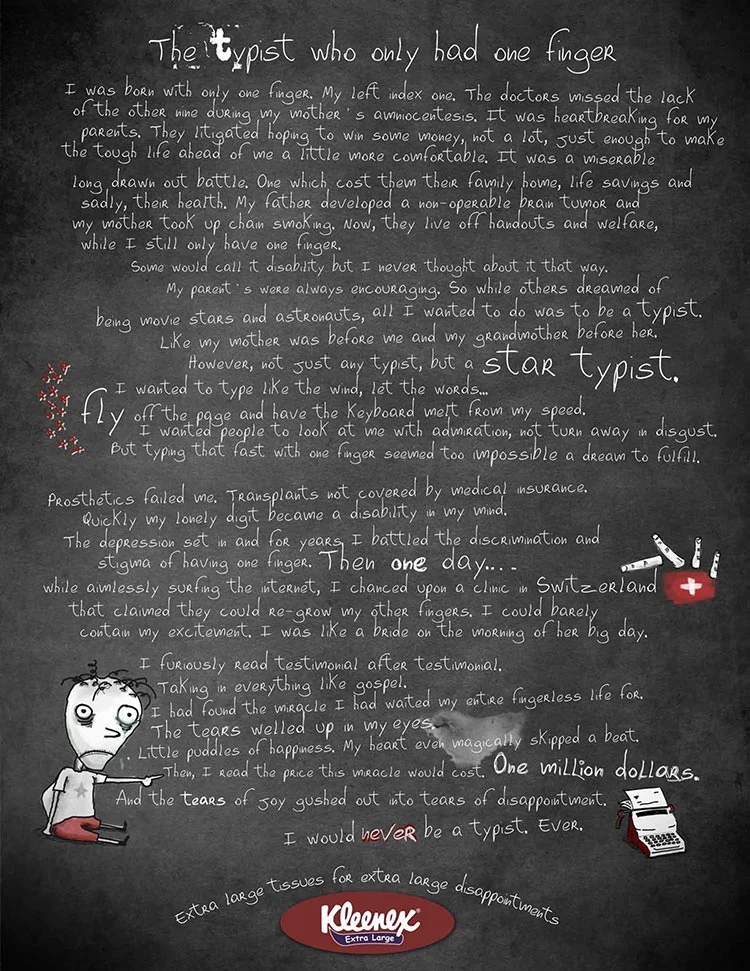 The typist who only had one finger
I was born with only one finger. My left index one. The doctors missed the lack
of the other nine during my mother's amniocentesis. It was heartbreaking for my
parents. They litigated hoping to win some money, not a lot, just enough to make
the tough life ahead of me a little more comfortable. It was a miserable
long drawn out battle. One which cost them their family home, life savings and
sadly, their health. My father developed a non-operable brain tumor and
my mother took up chain smoking. Now, they live off handouts and welfare,
while I still only have one finger.
Some would call it disability but I never thought about it that way.
My parent's were always encouraging. So while others dreamed of
being movie stars and astronauts, all I wanted to do was to be a typist.
Like my mother was before me and my grandmother before her.
However, not just any typist, but a star typist.
I wanted to type like the wind, let the words...
fly off the page and have the keyboard melt from my speed.
I wanted people to look at me with admiration, not turn away in disgust.
But typing that fast with one finger seemed too impossible a dream to fulfill.
Prosthetics failed me. Transplants not covered by medical insurance.
Quickly my lonely digit became a disability in my mind.
The depression set in and for years, I battled the discrimination and
stigma of having one finger. Then one day....
while aimlessly surfing the internet, I chanced upon a clinic in Switzerland
that claimed they could re-grow my other fingers. I could barely
contain my excitement. I was like a bride on the morning of her big day.
I furiously read testimonial after testimonial.
Taking in everything like gospel.
I had found the miracle I had waited my entire fingerless life for.
The tears welled up in my eyes.
Little puddles of happiness. My heart even magically skipped a beat.
Then, I read the price this miracle would cost. One million dollars.
And the tears of joy gushed out into tears of disappointment.
I would never be a typist. Ever.
Extra large tissues for extra large disappointments
Kleenex
Extra Large